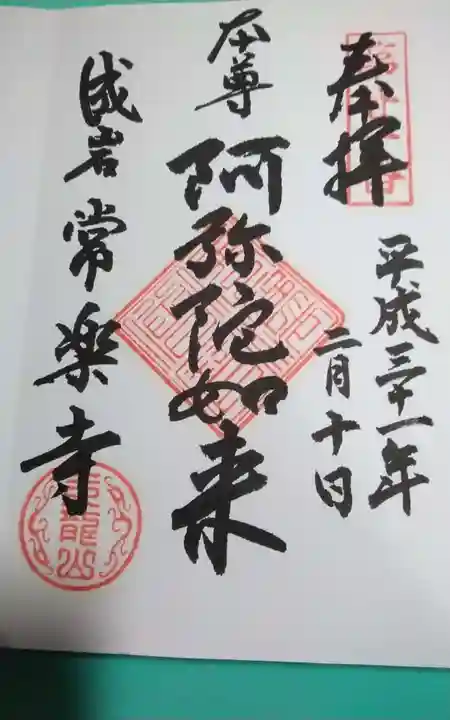 奉拝
平成三十一年
二月十日
本尊
阿弥陀如来
成岩 常楽寺